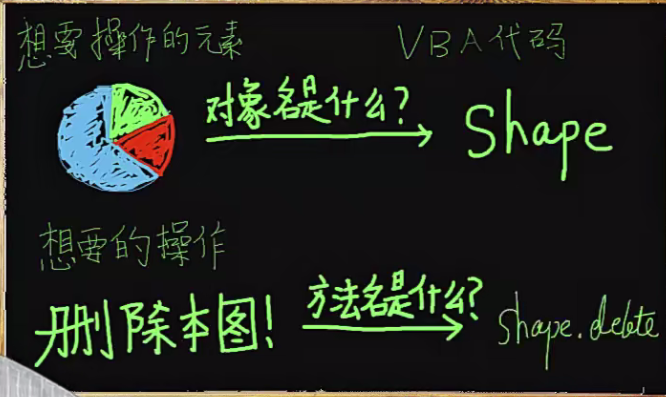 想要操作的元素 VBA代码
对象名是什么? Shape
想要的操作
删除本图! 方法名是什么? shape.delete